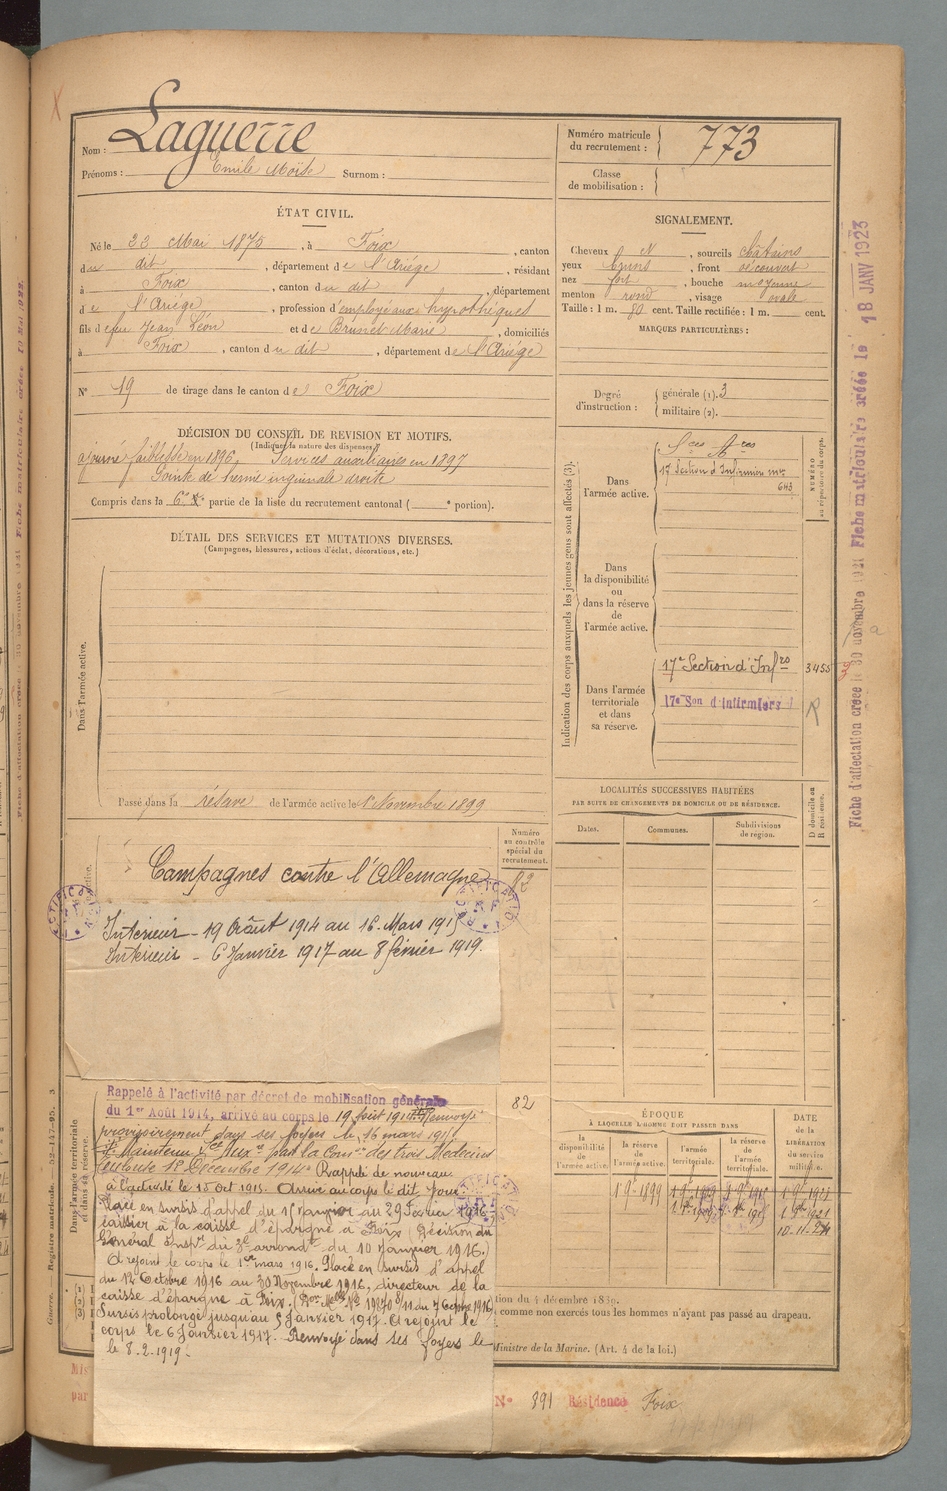 Nom : Laguerre
Prénoms : Emile Moïse Surnom :
ÉTAT CIVIL.
Né le 22 Mai 1875, à Foix, canton
du dit, département de l'Ariége, résidant
à Foix, canton du dit, département
de l'Ariége, profession d'employé aux hypothéques
fils de feu Jean Léon et de Brunet Marie, domiciliés
à Foix, canton du dit, département de l'Ariége
N° 19 de tirage dans le canton de Foix
DÉCISION DU CONSEIL DE REVISION ET MOTIFS.
(Indiquer la nature des dispenses)
ajourné faiblesse en 1896. Services auxiliaires en 1897
Pointe de hernie inguinale droite
Compris dans la 6e partie de la liste du recrutement cantonal ( e portion).
DÉTAIL DES SERVICES ET MUTATIONS DIVERSES.
(Campagnes, blessures, actions d'éclat, décorations, etc.)
Dans l'armée active.
Passé dans la réserve de l'armée active le 1er Novembre 1899
Numéro
au contrôle
spécial du
recrutement.
82
Campagnes contre l'Allemagne
Intérieur - 19 Août 1914 au 16 Mars 1915
Intérieur - 6 Janvier 1917 au 8 février 1919.
Dans l'armée territoriale
et dans sa réserve.
82
Rappelé à l'activité par décret de mobilisation générale
du 1er Août 1914, arrivé au corps le 19 Août 1914. Renvoyé
provisoirement dans ses foyers le 16 mars 1915
Maintenu Sce Auxre par la Comon des trois Médecins
Toulouse 18 Décembre 1914 Rappelé de nouveau
à l'activité le 15 Oct 1915. Arrivé au corps le dit jour
Placé en sursis d'appel du 1er Janvier au 29 Février 1916
caissier à la caisse d'épargne à Foix (Décision du
Général Inspr du 3e arrondt du 10 Janvier 1916.)
A rejoint le corps le 1er mars 1916. Placé en sursis d'appel
du 12 Octobre 1916 au 30 Novembre 1916, directeur de la
caisse d'épargne à Foix. du 7 Octobre 1916
Sursis prolongé jusqu'au 5 Janvier 1917. A rejoint le
corps le 6 Janvier 1917. Renvoyé dans ses foyers le
le 8.2.1919.
Numéro matricule
du recrutement : 773
Classe
de mobilisation :
SIGNALEMENT.
Cheveux et, sourcils châtains
yeux bruns, front découvert
nez fort, bouche moyenne
menton rond, visage ovale
Taille : 1 m. 80 cent. Taille rectifiée : 1 m. cent.
MARQUES PARTICULIÈRES :
Degré
d'instruction :
générale (1). 3
militaire (2).
Indication des corps auxquels les jeunes gens sont affectés (3).
NUMÉRO
au répertoire du corps.
Dans
l'armée active.
17 Section d'Infirmiers mres
643
Dans
la disponibilité
ou
dans la réserve
de
l'armée active.
Dans l'armée
territoriale
et dans
sa réserve.
17e Section d'Infres 3455
17e Son d'Infirmiers
R
LOCALITÉS SUCCESSIVES HABITÉES
PAR SUITE DE CHANGEMENTS DE DOMICILE OU DE RÉSIDENCE.
Dates. Communes. Subdivisions
de région.
D domicile ou
R résidence.
ÉPOQUE
À LAQUELLE L'HOMME DOIT PASSER DANS
la
disponibilité
de
l'armée active.
la réserve
de
l'armée active.
l'armée
territoriale.
la réserve
de
l'armée
territoriale.
DATE
de la
LIBÉRATION
du service
militaire.
1 9bre 1899 1 9bre 1909 1 9bre 1915 1 9bre 1921
1 9bre 1921
10-11-24
tion du 4 décembre 1830.
comme non exercés tous les hommes n'ayant pas passé au drapeau.
Ministre de la Marine. (Art. 4 de la loi.)
N° 391 Résidence Foix
Fiche d'affectation créée le 30 novembre 1921 Fiche matriculaire créée le 18 JANV 1923